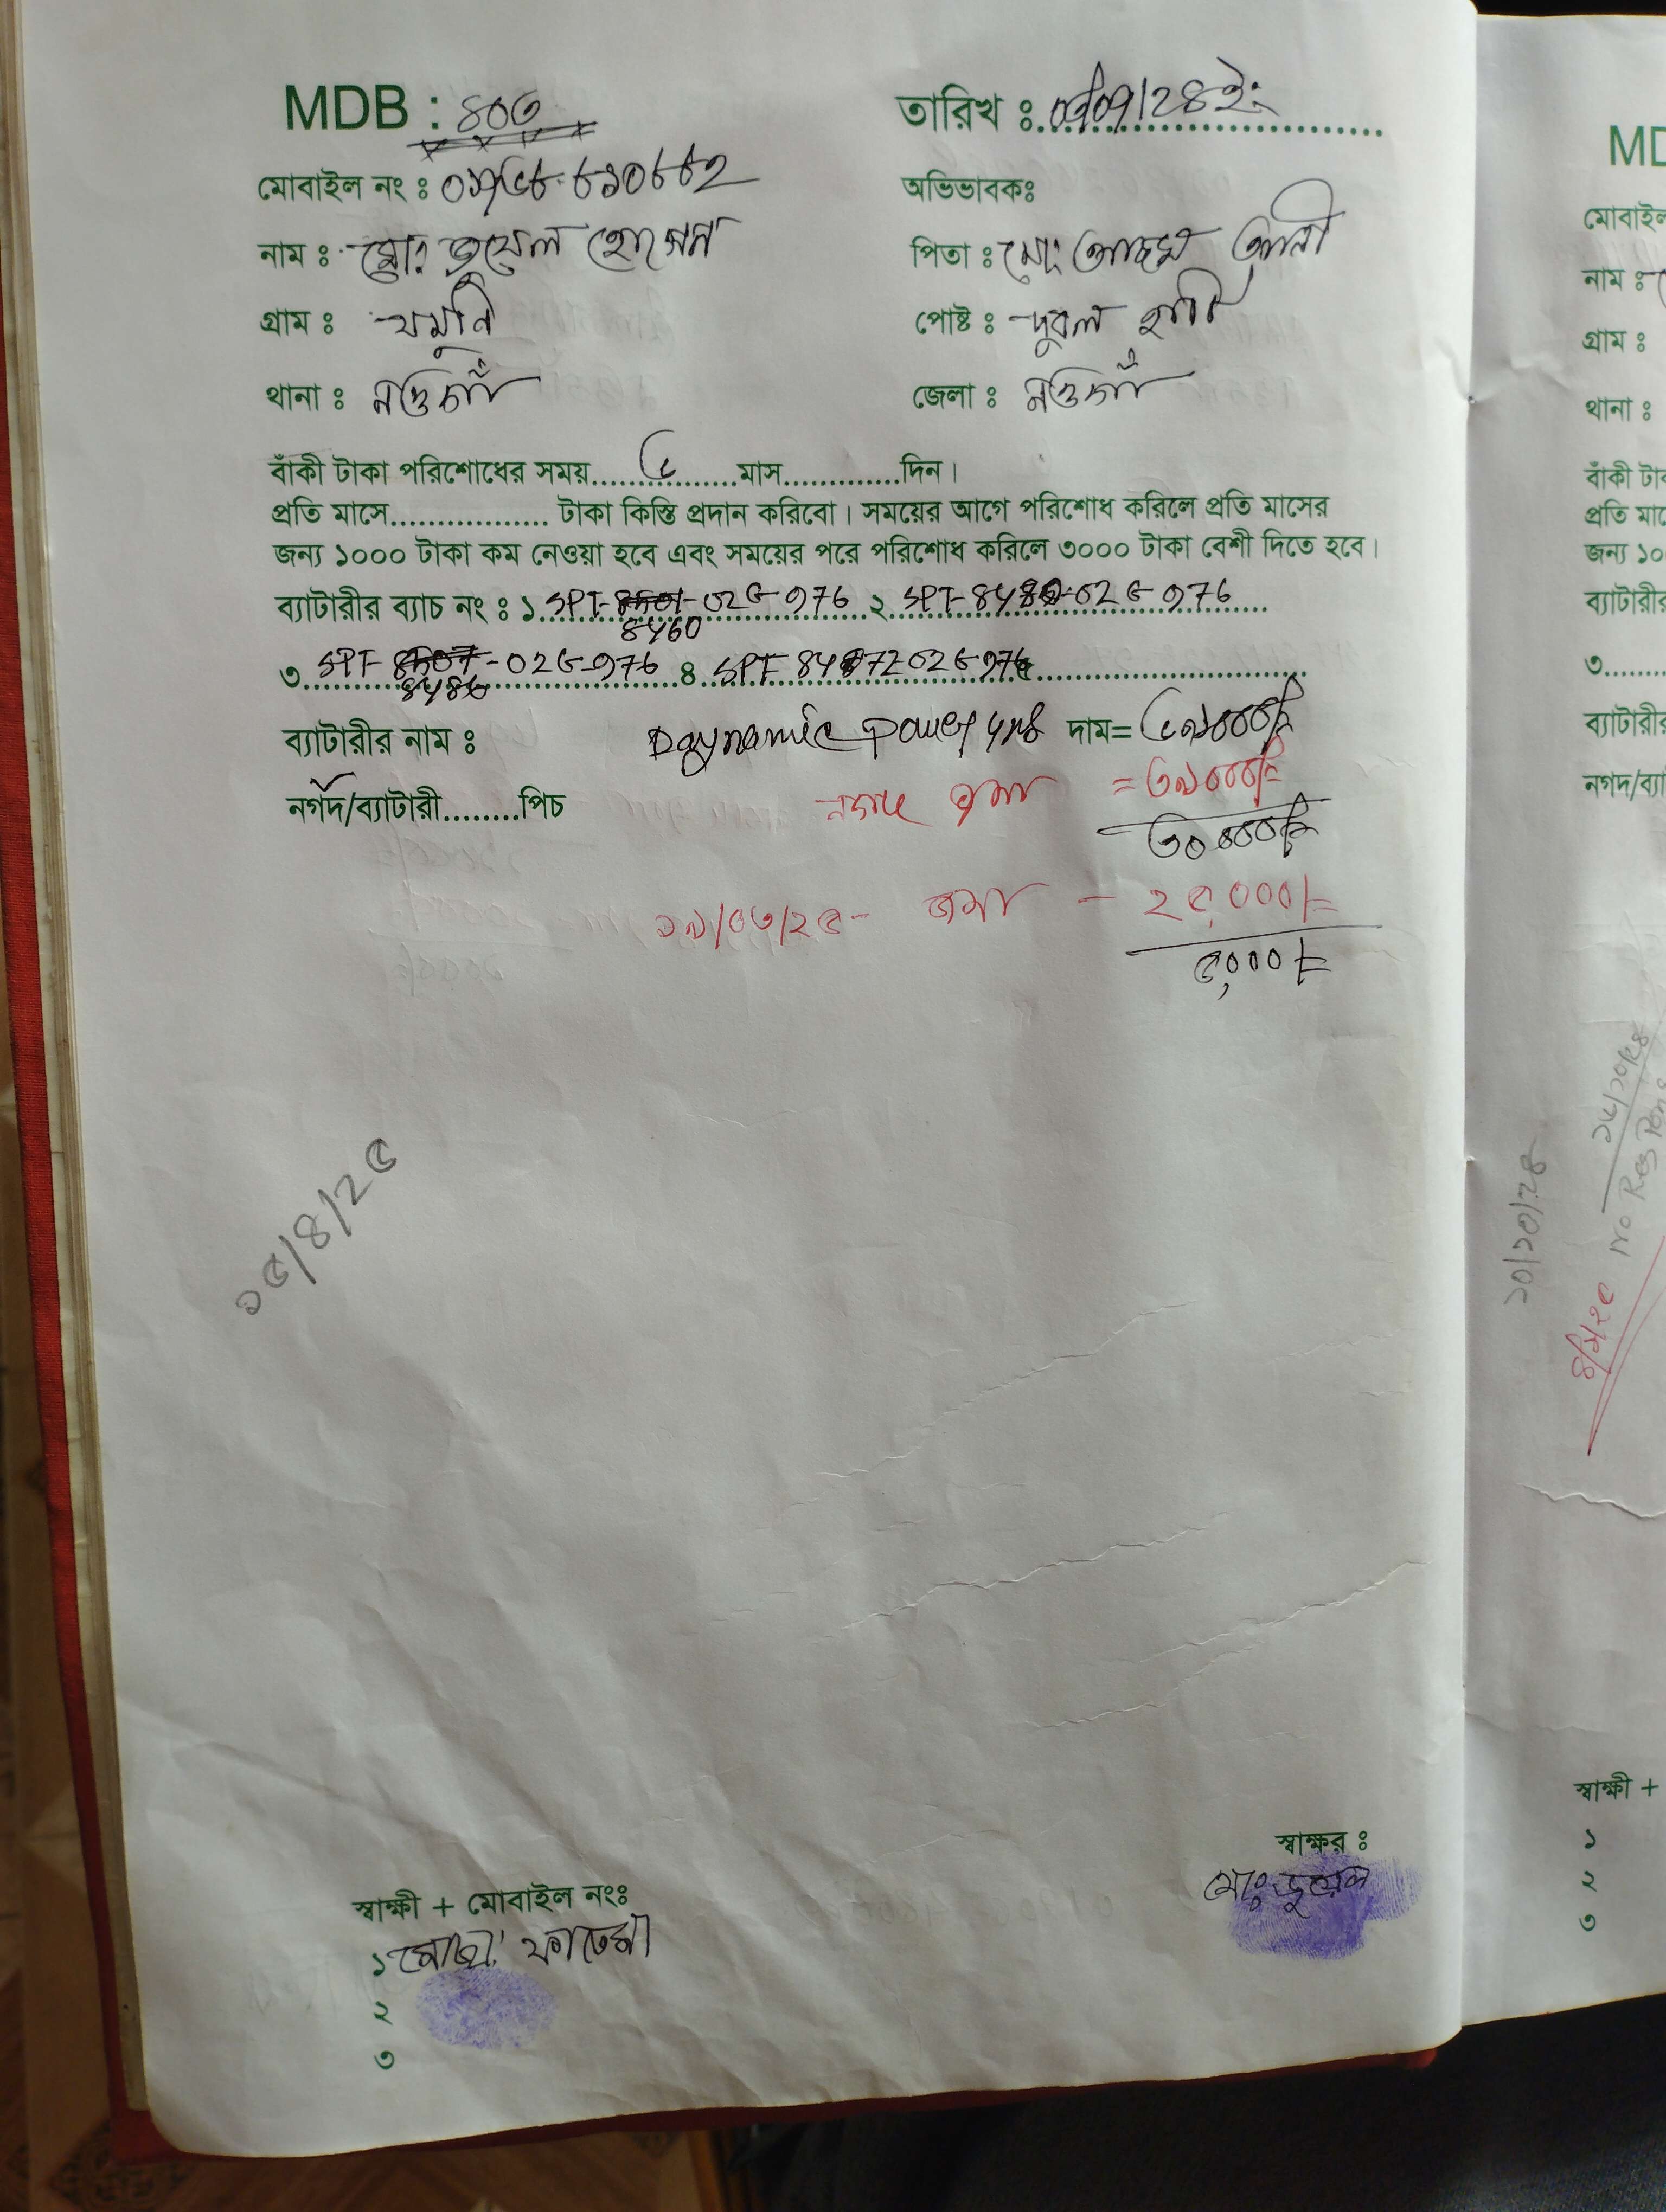 MDB : ৪০৩
তারিখ ঃ
মোবাইল নং ঃ
অভিভাবকঃ
নাম ঃ মোঃ জুয়েল হোসেন
পিতা ঃ মোঃ আলী
গ্রাম ঃ
পোষ্ট ঃ দুবল হাটি
থানা ঃ নওগাঁ
জেলা ঃ নওগাঁ
বাঁকী টাকা পরিশোধের সময়.....৫.....মাস.............দিন।
প্রতি মাসে................. টাকা কিস্তি প্রদান করিবো। সময়ের আগে পরিশোধ করিলে প্রতি মাসের
জন্য ১০০০ টাকা কম নেওয়া হবে এবং সময়ের পরে পরিশোধ করিলে ৩০০০ টাকা বেশী দিতে হবে।
ব্যাটারীর ব্যাচ নং ঃ ১ SPT- -02G-976 ২ SPT- -02G-976
8460
৩ SPT- -02G-976 ৪ SPT- 02G976 ৫
8486
ব্যাটারীর নাম ঃ Daynamic Power দাম= ৬৯০০০/=
নগদ/ব্যাটারী........পিচ নগদ জমা = ৩৯০০০/=
৩০০০০/=
১৯/০৩/২৫ - জমা - ২৫,০০০/=
৫,০০০/=
১৫/৪/২৫
স্বাক্ষর ঃ
মোঃ জুয়েল
স্বাক্ষী + মোবাইল নংঃ
১ মোছাঃ ফাতেমা
২
৩
MD
মোবাইল
নাম ঃ
গ্রাম ঃ
থানা ঃ
বাঁকী টা
প্রতি মা
জন্য ১০
ব্যাটারী
৩........
ব্যাটারী
নগদ/ব্যা
১০/১০/২৪
No Res
স্বাক্ষী +
১
২
৩